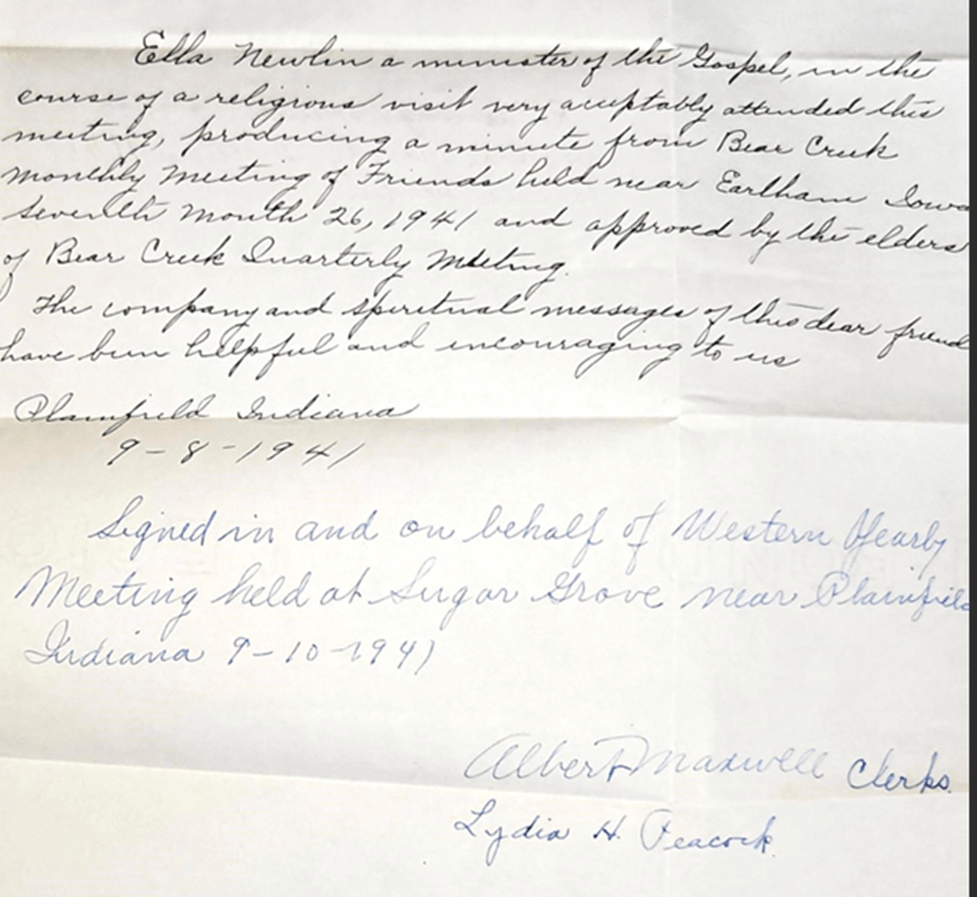 Ella Newlin a minister of the Gospel, in the
course of a religious visit very acceptably attended this
meeting, producing a minute from Bear Creek
Monthly Meeting of Friends held near Earlham Iowa
Seventh Month 26, 1941 and approved by the elders
of Bear Creek Quarterly Meeting.
The company and spiritual messages of this dear friend
have been helpful and encouraging to us
Plainfield Indiana
9-8-1941
Signed in and on behalf of Western Yearly
Meeting held at Sugar Grove near Plainfield
Indiana 9-10-1941
Albert Maxwell Clerks.
Lydia H. Peacock.